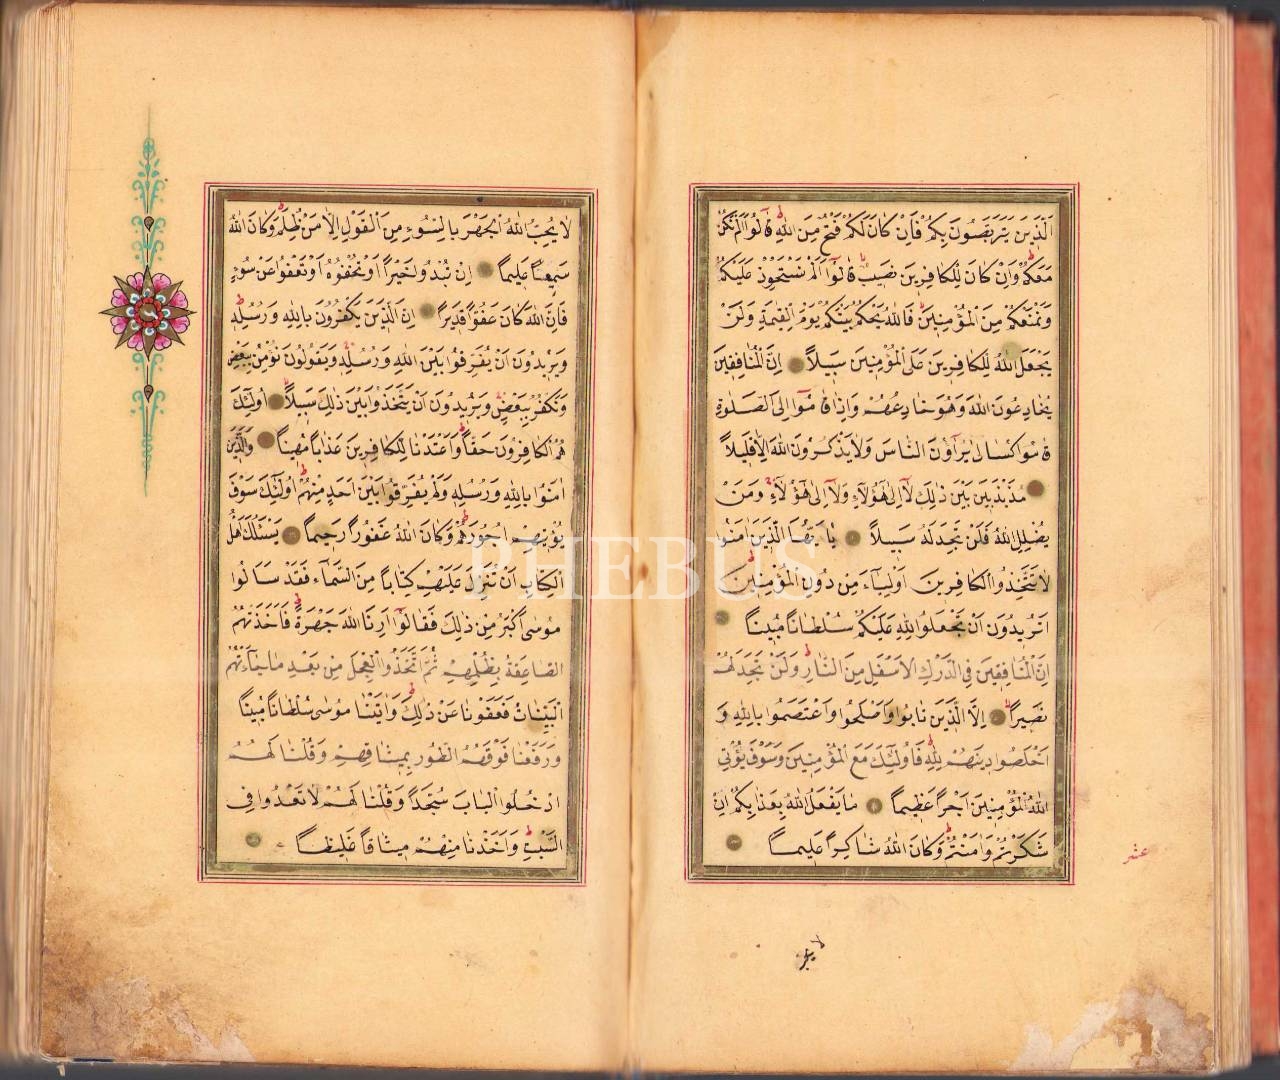 اَلَّذِينَ يَتَرَبَّصُونَ بِكُمْ فَاِنْ كَانَ لَكُمْ فَتْحٌ مِنَ اللهِ قَالُوا اَلَمْ نَكُنْ
مَعَكُمْ وَاِنْ كَانَ لِلْكَافِرِينَ نَصِيبٌ قَالُوا اَلَمْ نَسْتَحْوِذْ عَلَيْكُمْ
وَنَمْنَعْكُمْ مِنَ الْمُؤْمِنِينَ فَاللهُ يَحْكُمُ بَيْنَكُمْ يَوْمَ الْقِيٰمَةِ وَلَنْ
يَجْعَلَ اللهُ لِلْكَافِرِينَ عَلَى الْمُؤْمِنِينَ سَبِيلاً اِنَّ الْمُنَافِقِينَ
يُخَادِعُونَ اللهَ وَهُوَ خَادِعُهُمْ وَاِذَا قَامُوا اِلَى الصَّلٰوةِ
قَامُوا كُسَالٰى يُرَاؤُنَ النَّاسَ وَلَا يَذْكُرُونَ اللهَ اِلَّا قَلِيلاً
مُذَبْذَبِينَ بَيْنَ ذٰلِكَ لَا اِلٰى هٰؤُلَاءِ وَلَا اِلٰى هٰؤُلَاءِ وَمَنْ
يُضْلِلِ اللهُ فَلَنْ تَجِدَ لَهُ سَبِيلاً يَا اَيُّهَا الَّذِينَ اٰمَنُوا
لَا تَتَّخِذُوا الْكَافِرِينَ اَوْلِيَاءَ مِنْ دُونِ الْمُؤْمِنِينَ
اَتُرِيدُونَ اَنْ تَجْعَلُوا لِلهِ عَلَيْكُمْ سُلْطَانًا مُبِينًا
اِنَّ الْمُنَافِقِينَ فِي الدَّرْكِ الْاَسْفَلِ مِنَ النَّارِ وَلَنْ تَجِدَ لَهُمْ
نَصِيرًا اِلَّا الَّذِينَ تَابُوا وَاَصْلَحُوا وَاعْتَصَمُوا بِاللهِ وَ
اَخْلَصُوا دِينَهُمْ لِلهِ فَاُولٰئِكَ مَعَ الْمُؤْمِنِينَ وَسَوْفَ يُؤْتِ
اللهُ الْمُؤْمِنِينَ اَجْرًا عَظِيمًا مَا يَفْعَلُ اللهُ بِعَذَابِكُمْ اِنْ
شَكَرْتُمْ وَاٰمَنْتُمْ وَكَانَ اللهُ شَاكِرًا عَلِيمًا
عشر
لا يحب
لَا يُحِبُّ اللهُ الْجَهْرَ بِالسُّوءِ مِنَ الْقَوْلِ اِلَّا مَنْ ظُلِمَ وَكَانَ اللهُ
سَمِيعًا عَلِيمًا اِنْ تُبْدُوا خَيْرًا اَوْ تُخْفُوهُ اَوْ تَعْفُوا عَنْ سُوءٍ
فَاِنَّ اللهَ كَانَ عَفُوًّا قَدِيرًا اِنَّ الَّذِينَ يَكْفُرُونَ بِاللهِ وَرُسُلِهِ
وَيُرِيدُونَ اَنْ يُفَرِّقُوا بَيْنَ اللهِ وَرُسُلِهِ وَيَقُولُونَ نُؤْمِنُ بِبَعْضٍ
وَنَكْفُرُ بِبَعْضٍ وَيُرِيدُونَ اَنْ يَتَّخِذُوا بَيْنَ ذٰلِكَ سَبِيلاً اُولٰئِكَ
هُمُ الْكَافِرُونَ حَقًّا وَاَعْتَدْنَا لِلْكَافِرِينَ عَذَابًا مُهِينًا وَالَّذِينَ
اٰمَنُوا بِاللهِ وَرُسُلِهِ وَلَمْ يُفَرِّقُوا بَيْنَ اَحَدٍ مِنْهُمْ اُولٰئِكَ سَوْفَ
يُؤْتِيهِمْ اُجُورَهُمْ وَكَانَ اللهُ غَفُورًا رَحِيمًا يَسْئَلُكَ اَهْلُ
الْكِتَابِ اَنْ تُنَزِّلَ عَلَيْهِمْ كِتَابًا مِنَ السَّمَاءِ فَقَدْ سَاَلُوا
مُوسٰى اَكْبَرَ مِنْ ذٰلِكَ فَقَالُوا اَرِنَا اللهَ جَهْرَةً فَاَخَذَتْهُمُ
الصَّاعِقَةُ بِظُلْمِهِمْ ثُمَّ اتَّخَذُوا الْعِجْلَ مِنْ بَعْدِ مَا جَاءَتْهُمُ
الْبَيِّنَاتُ فَعَفَوْنَا عَنْ ذٰلِكَ وَاٰتَيْنَا مُوسٰى سُلْطَانًا مُبِينًا
وَرَفَعْنَا فَوْقَهُمُ الطُّورَ بِمِيثَاقِهِمْ وَقُلْنَا لَهُمُ
ادْخُلُوا الْبَابَ سُجَّدًا وَقُلْنَا لَهُمْ لَا تَعْدُوا فِي
السَّبْتِ وَاَخَذْنَا مِنْهُمْ مِيثَاقًا غَلِيظًا
PHEBUS